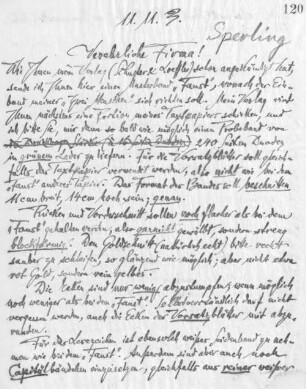 120
11. 11. 3.
Sperling
Verehrliche Firma!
Wie Ihnen mein Verlag (Schuster & Loeffler) schon angekündigt hat,
sende ich Ihnen hier einen Musterband „Faust", wonach der Ein-
band meiner „Zwei Menschen" sich richten soll. Mein Verlag wird
Ihnen nächstens eine Portion meines Textpapiers schicken, und
ich bitte Sie, mir dann so bald wie möglich einen Probeband von
240
in grünem Leder zu liefern. Für die Vorsatzblätter soll gleich-
falls das Textpapier verwendet werden, also nicht wie bei dem
„Faust" anderes Papier. Das Format des Bandes soll, beschnitten
11 cm breit, 14 cm hoch sein; genau.
Rücken und Vorderschnitt sollen noch flacher als bei dem
„Faust" gehalten werden, also garnicht gewölbt, sondern streng
blockförmig. Den Goldschnitt bitte recht
sauber zu schleifen, so glänzend wie möglich; aber nicht etwa
rot Gold, sondern rein gelbes.
Die Ecken sind nur wenig abzurunden, wenn möglich
noch weniger als bei dem „Faust". Selbstverständlich darf nicht
vergessen werden, auch die Ecken der Vorsatzblätter mit abzu-
runden.
Für das Lesezeichen ist ebensolch weißes Seidenband zu neh-
men wie bei dem „Faust". Außerdem sind aber auch noch
Capitälbändchen einzusetzen, gleichfalls aus reiner weißer